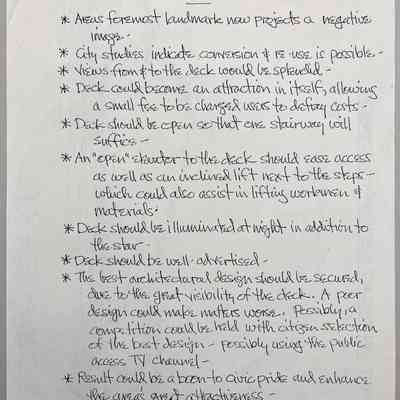 * Areas foremost landmark now projects a negative
image -
* City studies indicate conversion & re-use is possible -
* Views from & to the deck would be splendid -
* Deck could become an attraction in itself, allowing
a small fee to be charged users to defray costs -
* Deck should be open so that one stairway will
suffice -
* An "open" elevator to the deck should ease access
as well as an inclined lift next to the steps -
which could also assist in lifting workmen &
materials.
* Deck should be illuminated at night in addition to
the star -
* Deck should be well-advertised -
* The best architectural design should be secured,
due to the great visibility of the deck. A poor
design could make matters worse. Possibly, a
competition could be held with citizen selection
of the best design - possibly using the public
access TV channel -
* Result could be a boon to civic pride and enhance
the area's great attractiveness -